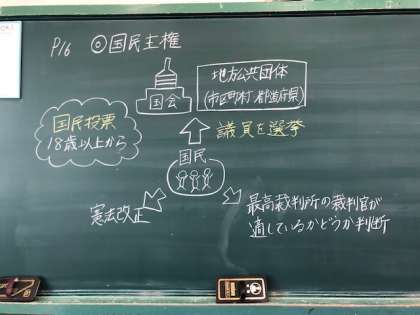 P16 ◎国民主権
地方公共団体
(市区町村 都道府県)
国会
国民投票
18歳以上から
議員を選挙
国民
憲法改正
最高裁判所の裁判官が
適しているかどうか判断